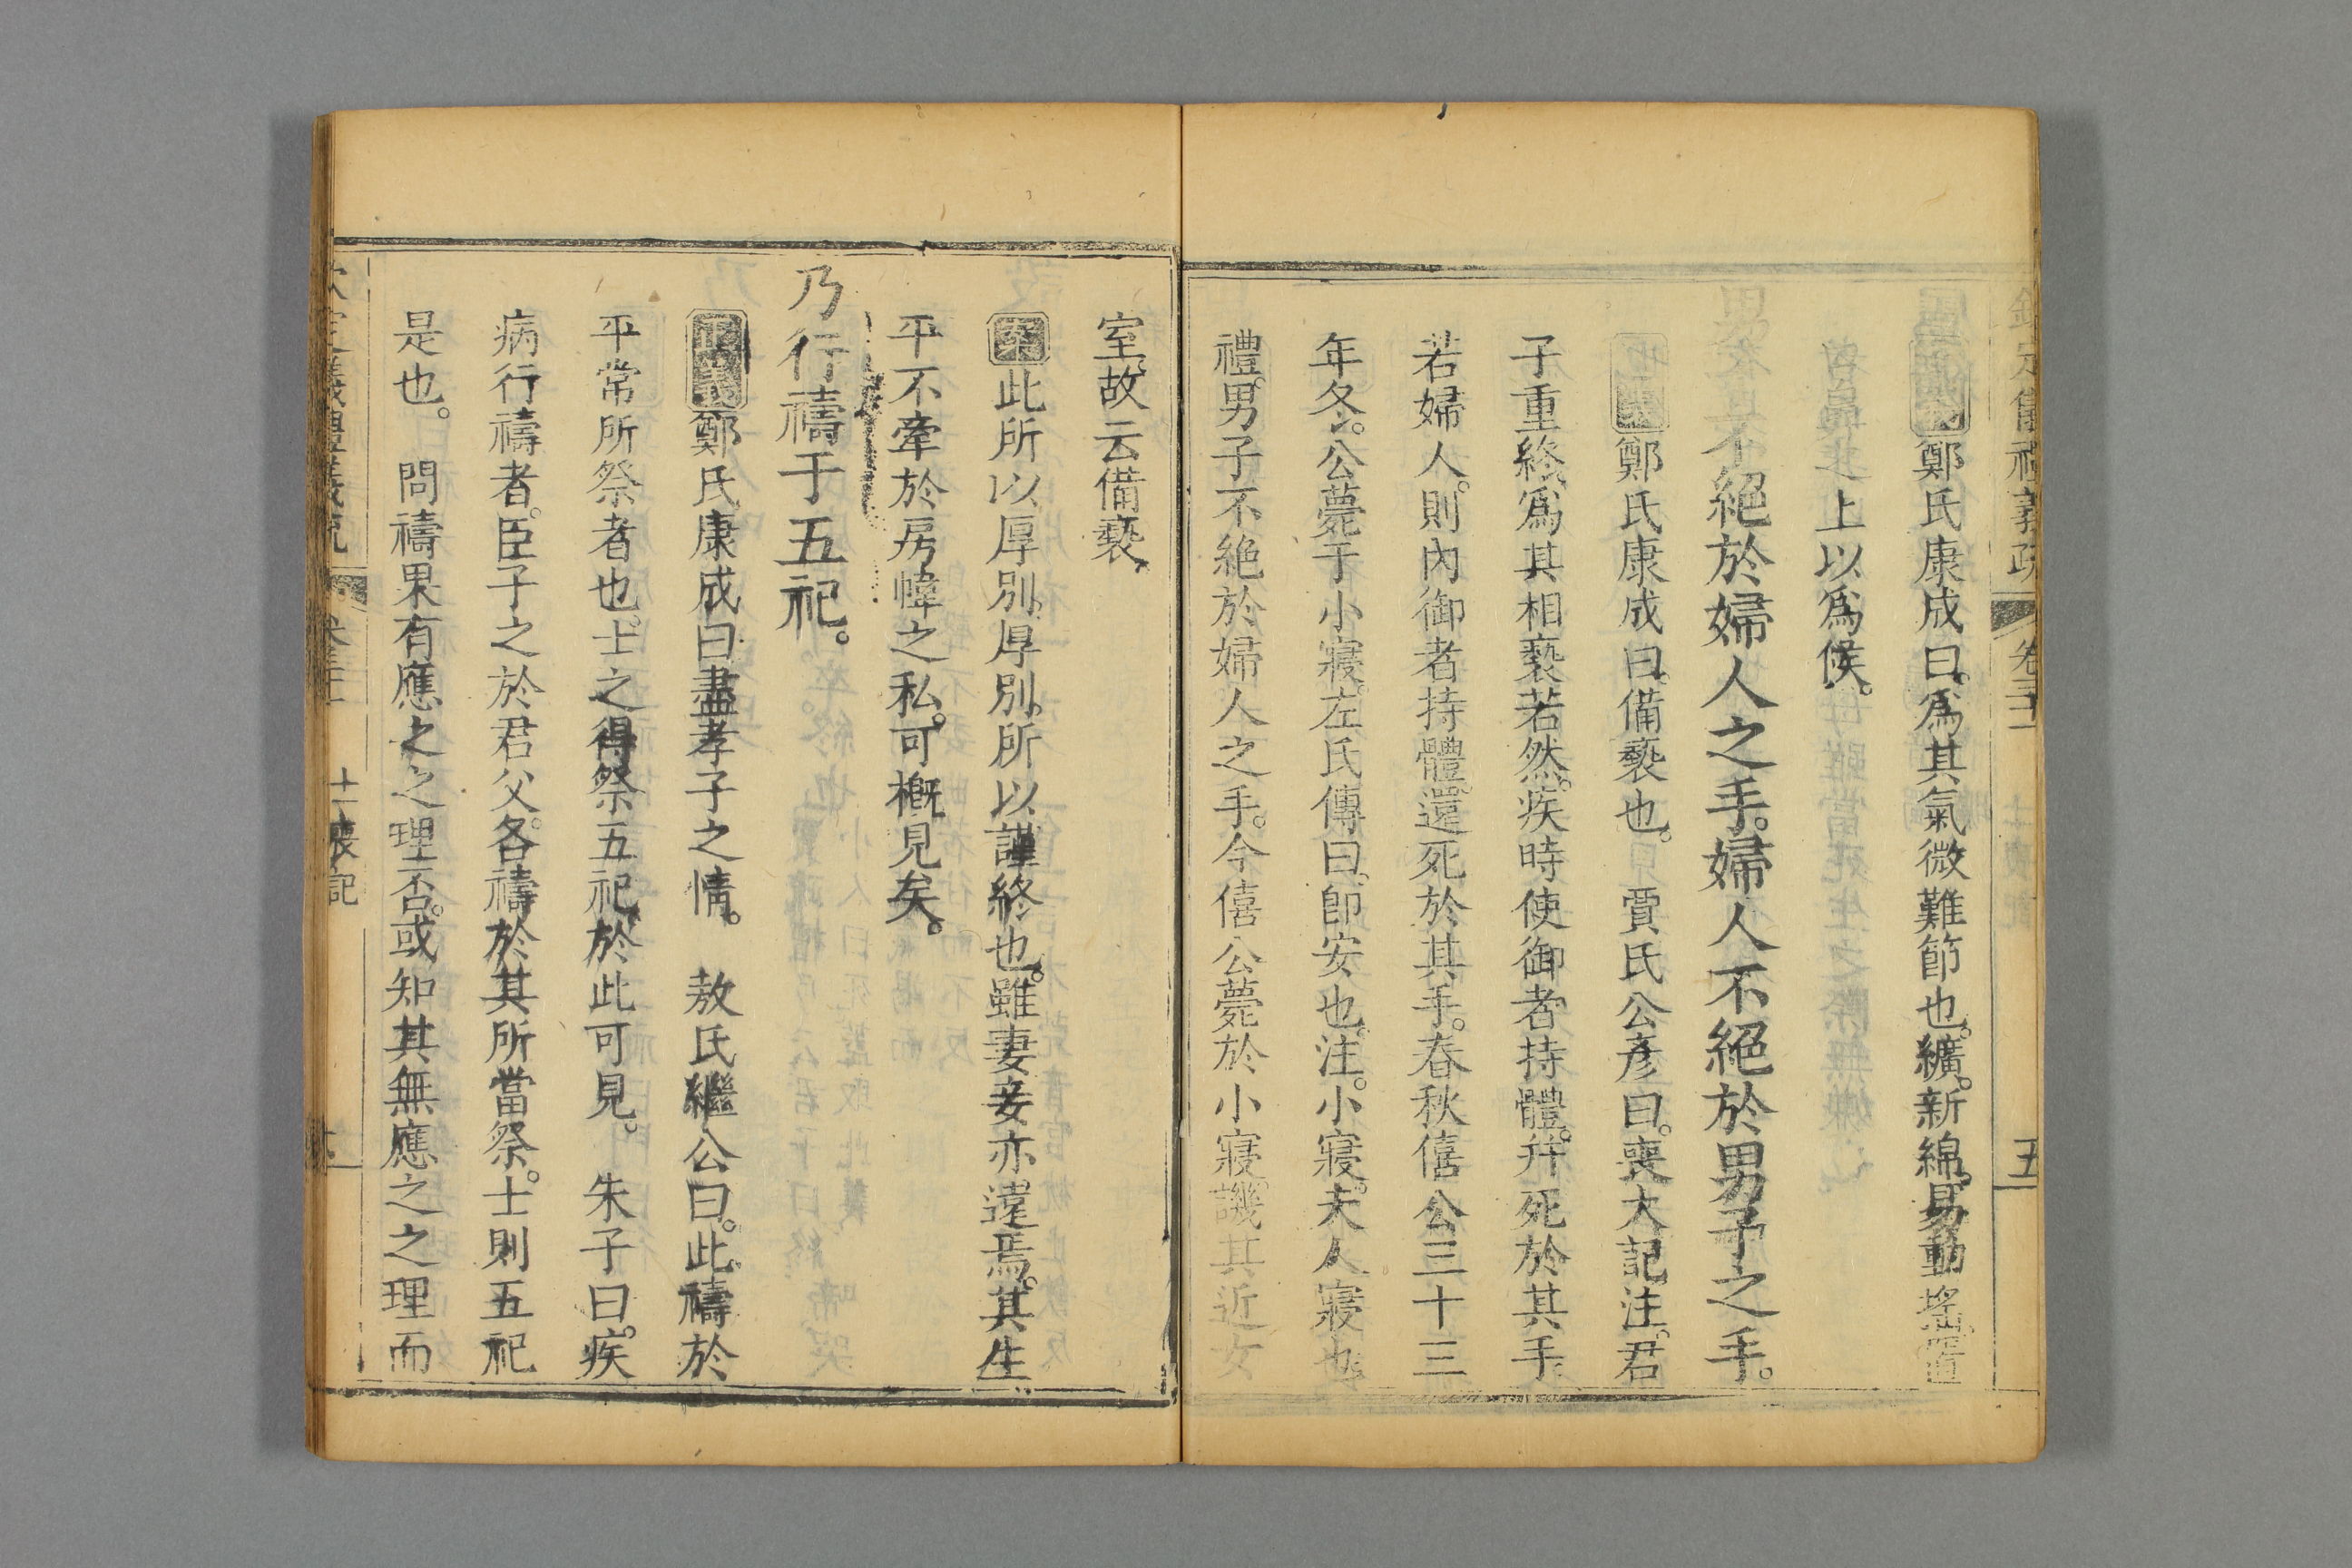 欽定儀禮義疏 卷三十一 五
正義鄭氏康成曰。爲其氣微難節也。纊。新綿。易動搖。置
口鼻之上以爲候。
男子不絕於婦人之手。婦人不絕於男子之手。
正義鄭氏康成曰。備褻也。 賈氏公彥曰。喪大記注。君
子重終、爲其相褻若然。疾時使御者持體。幷死於其手
若婦人。則內御者持體。還死於其手。春秋僖公三十三
年冬。公薨于小寢。左氏傳曰。卽安也。注。小寢。夫人寢也。
禮。男子不絕於婦人之手。今僖公薨於小寢。譏其近女
室。故云備褻、
案此所以厚別。厚別。所以謹終也。雖妻妾亦遠焉。其生
平不牽於房幃之私。可槪見矣。
乃行禱于五祀。
正義鄭氏康成曰盡孝子之情。 敖氏繼公曰。此禱於
平常所祭者也。士之得祭五祀、於此可見。 朱子曰。疾
病行禱者。臣子之於君父。各禱於其所當祭。士則五祀
是也。 問禱果有應之之理否。或知其無應之之理而
欽定儀禮義疏 卷三十一 士喪記